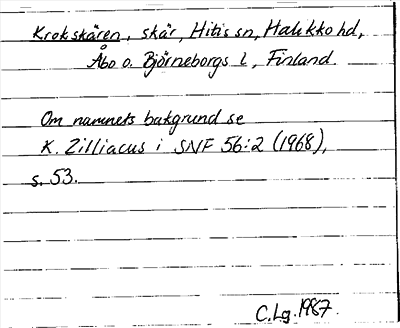 Krokskären, skär, Hitis sn, Halikko hd,
Åbo o. Björneborgs l, Finland.
Om namnets bakgrund se
K. Zilliacus i SNF 56:2 (1968),
s. 53.
C.Lg. 1987.